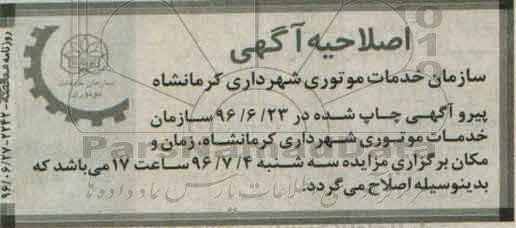 اصلاحیه آگهی
سازمان خدمات موتوری شهرداری کرمانشاه
پیرو آگهی چاپ شده در ۹۶/۶/۲۳ سازمان
خدمات موتوری شهرداری کرمانشاه، زمان و
مکان برگزاری مزایده سه شنبه ۹۶/۷/۴ ساعت ۱۷ می‌باشد که
بدینوسیله اصلاح می‌گردد.
روزنامه مناقصه - ۲۲۳۲ - ۹۶/۰۶/۲۷